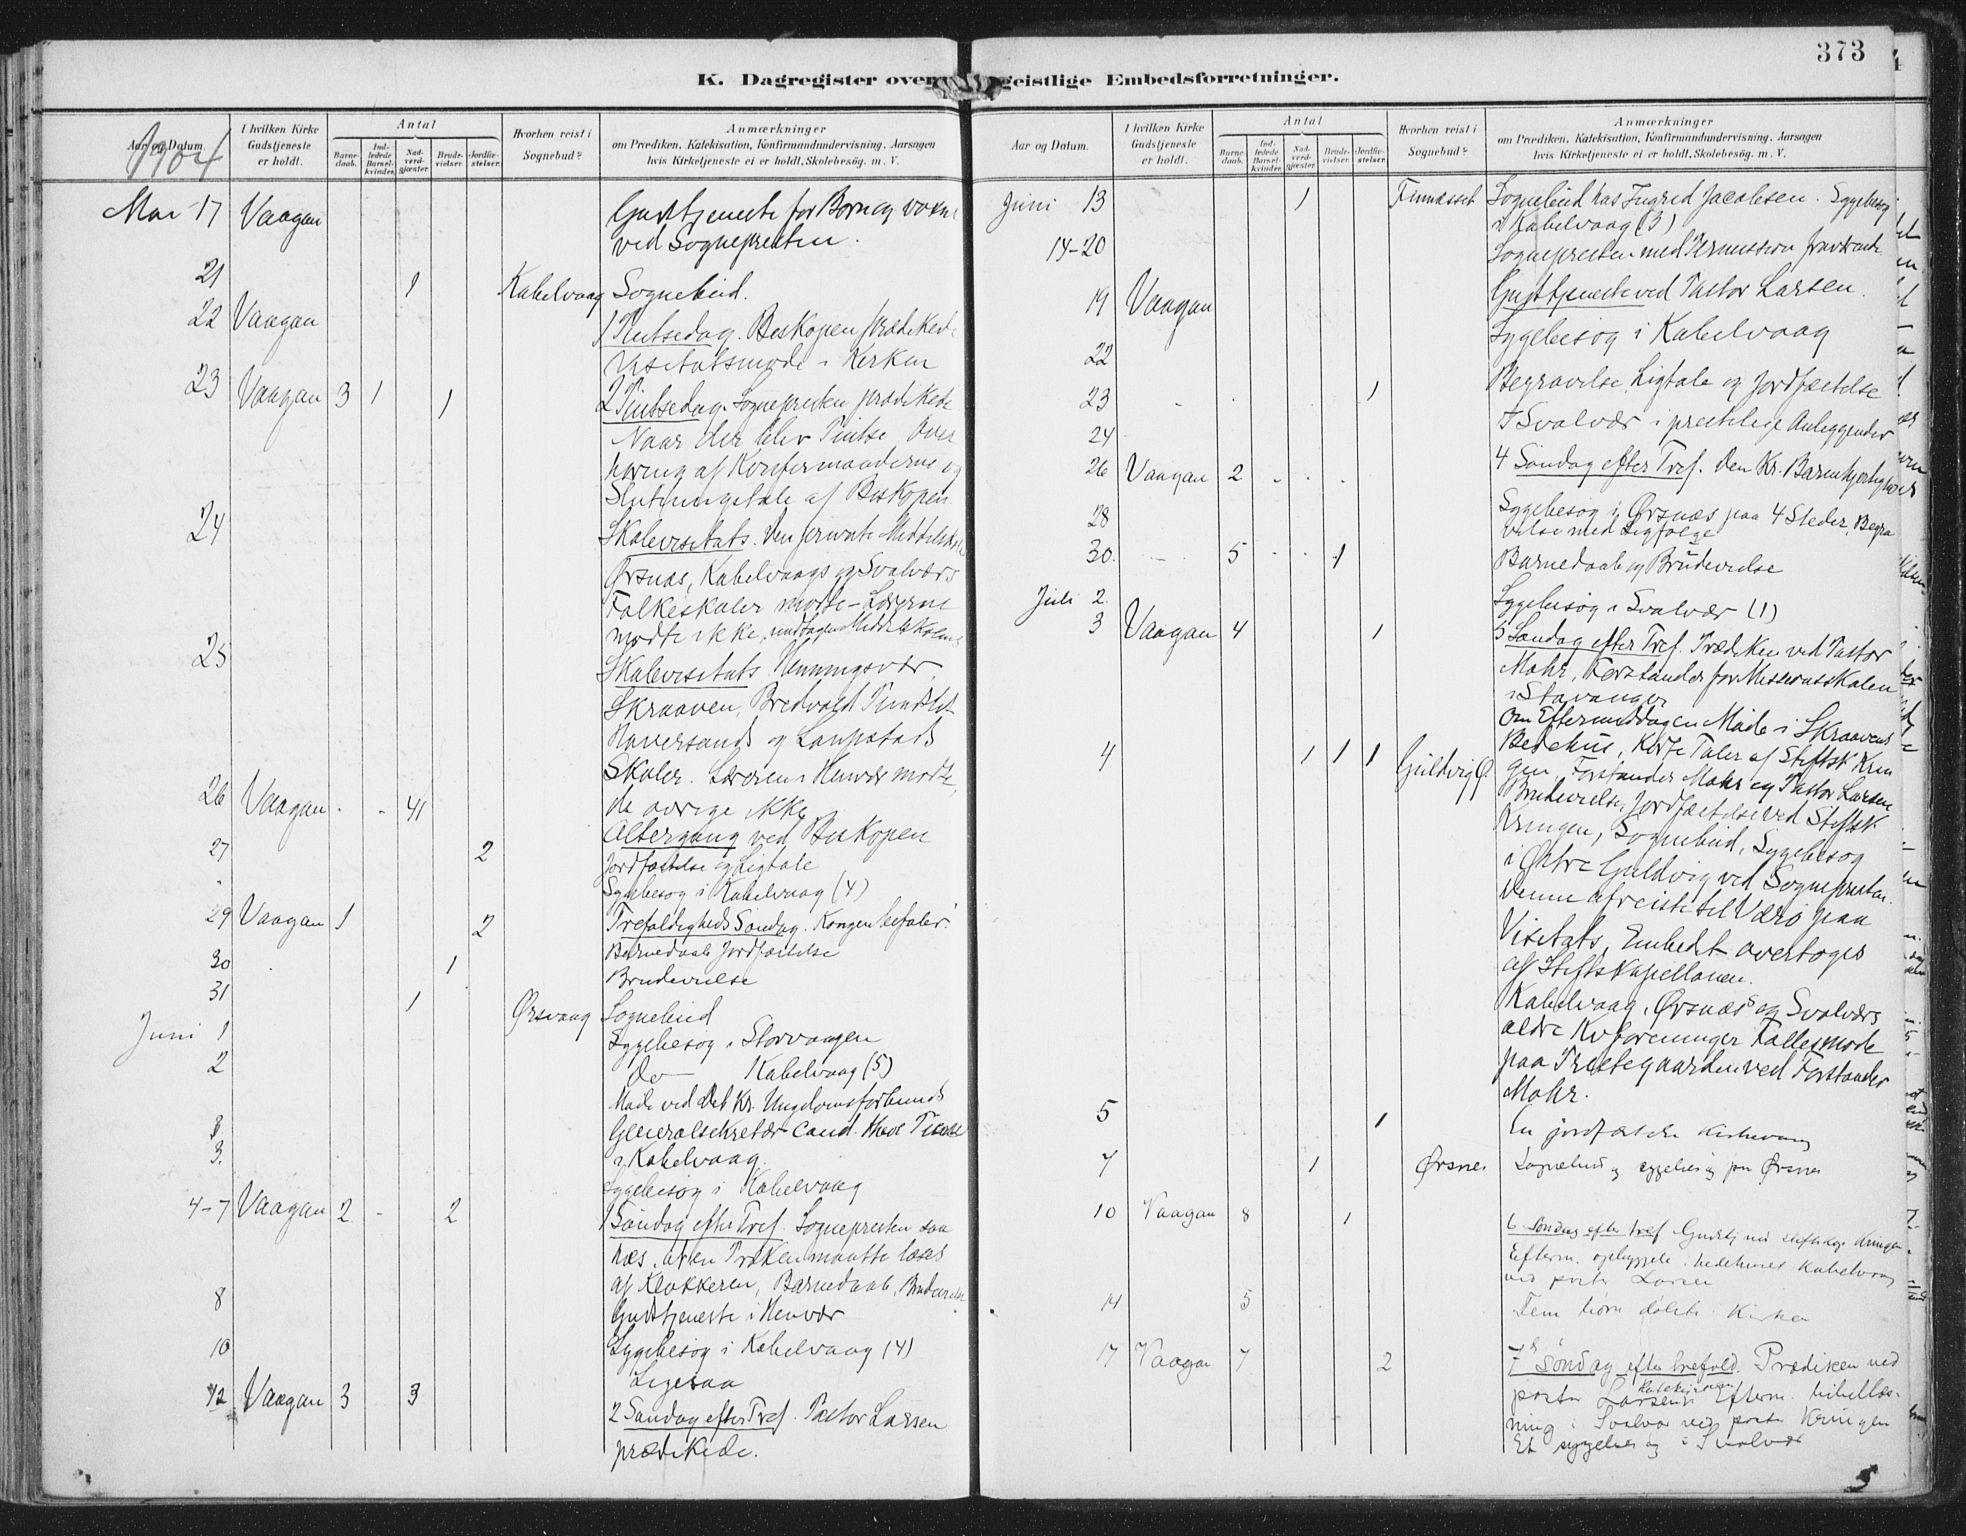 373
K. Dagregister over geistlige Embedsforretninger.
Aar og Datum.
I hvilken Kirke Gudstjeneste er holdt.
Antal
Barnedaab.
Indledede Barselkvinder.
Nadverdgjæster.
Brudevielser.
Jordfæstelser.
Hvorhen reist i Sognebud?
Anmærkninger
om Prædiken, Katekisation, Konfirmandundervisning. Aarsagen
hvis Kirketjeneste ei er holdt. Skolebesög. m. V.
1904
Mai 17 Vaagan Gudstjeneste for Börn og voxne
ved Sognepresten.
21 1 Kabelvaag Sognebud.
22 Vaagan 1 Pintsedag. Biskopen prædikede
Visitatsmöde i Kirken
23 Vaagan 3 1 1 2 Pintsedag. Sognepresten prædikede
Naar der blev Pintse, Over
høring af Konfirmanderne og
Slutningstale af Biskopen
24 Skolevisitats. Den private Middelskole
Ørsnæs, Kabelvaags og Svolværs
Folkeskoler mødte – Lærerne
mødte ikke, undtagen Middelskolens
25 Skolevisitats. Henningsvær,
Skraaven, Bredvold
og Laupstads
Skoler. Læreren i Henvær mødte,
de øvrige ikke
26 Vaagan 41 Altergang ved Biskopen
27 2 Jordfæstelse og Ligtale
Sygebesøg i Kabelvaag (4)
29 Vaagan 1 2 Trefoldigheds Søndag. Kongen befaler.
Barnedaab Jordfæstelse
30 1 Brudevielse
31 1 Ørsvaag Sognebud
Juni 1 Sygebesøg i Storvaagen
2 do – Kabelvaag (5)
Møde ved Det Kr. Ungdomsforbunds
3 Generalsekretær Cand.
3. i Kabelvaag.
Sygebesøg i Kabelvaag
4-7 Vaagan 2 - 2 1 Søndag efter Tref. Sognepresten saa
hæs, at en Præken maatte læses
af Klokkeren, Barnedaab, Brudevielse
8 Gudstjeneste i Henvær
10 Sygebesøg i Kabelvaag (4)
Ligesaa
12 Vaagan 3 3 2 Søndag efter Tref. Pastor Larsen
prædikede.
Aar og Datum.
I hvilken Kirke Gudstjeneste er holdt.
Antal
Barnedaab.
Indledede Barselkvinder.
Nadverdgjæster.
Brudevielser.
Jordfæstelser.
Hvorhen reist i Sognebud?
Anmærkninger
om Prædiken, Katekisation, Konfirmandundervisning. Aarsagen
hvis Kirketjeneste ei er holdt. Skolebesög. m. V.
Juni 13 1 Finnæsset Sognebud hos Ingrid Jacobsen. Sygebesøg
i Kabelvaag (3)
14-20 Sognepresten med Permission fraværende
19 Vaagan Gudstjeneste ved Pastor Larsen.
22 Sygebesøg i Kabelvaag
23 1 Begravelse Ligtale og Jordfæstelse
24 I Svolvær i prestelige Anliggender
26 Vaagan 2 4 Søndag efter Tref. Den Kr. Barmhjertighed
28 Sygebesøg i Ørsnæs paa 4 Steder, Begra
velse med Ligfølge
30. 5 1 Barnedaab og Brudevielse
Juli 2. Sygebesøg i Svolvær (1)
3 Vaagan 4 1 5 Søndag efter Tref. Prædiken ved Pastor
Mohr, Forstander for Missionsskolen
i Stavanger
Om Eftermiddagen Møde i Skraavens
4 1 1 1 Guldvig Ø. Bedehus, Korte Taler af Stiftsk Krin
gen, Forstander Mohr og Pastor Larsen
Brudevielse, Jordfæstelse ved Stiftsk
Kringen, Sognebud, Sygebesøg
i Østre Guldvig ved Sognepresten.
Denne afreiste til Værø paa
Visitats, Embedet overtoges
af Stiftskapellanen.
Kabelvaag, Ørsnæs og Svolværs
ældre Kvforeninger Fællesmøde
paa Prestegaarden ved Forstander
Mohr.
5 1 En jordfæstelse Kabelvaag
7 1 Ørsnes Sognebud og sygebesøg paa Ørsnes
10 Vaagan 8 1 6 Søndag efter Tref Gudstj ved stiftskap. Kringen
Efterm. opbyggelse i bedehuset Kabelvaag
ved pastor Larsen
14 5 Fem børn døbte i Kirken
17 Vaagan 7 2 7de Søndag efter trefold. Prædiken ved
pastor Larsen. Katekisation Efterm. bibellæs-
ning i Svolvær ved pastor Kringen
Et sygebesøg i Svolvær